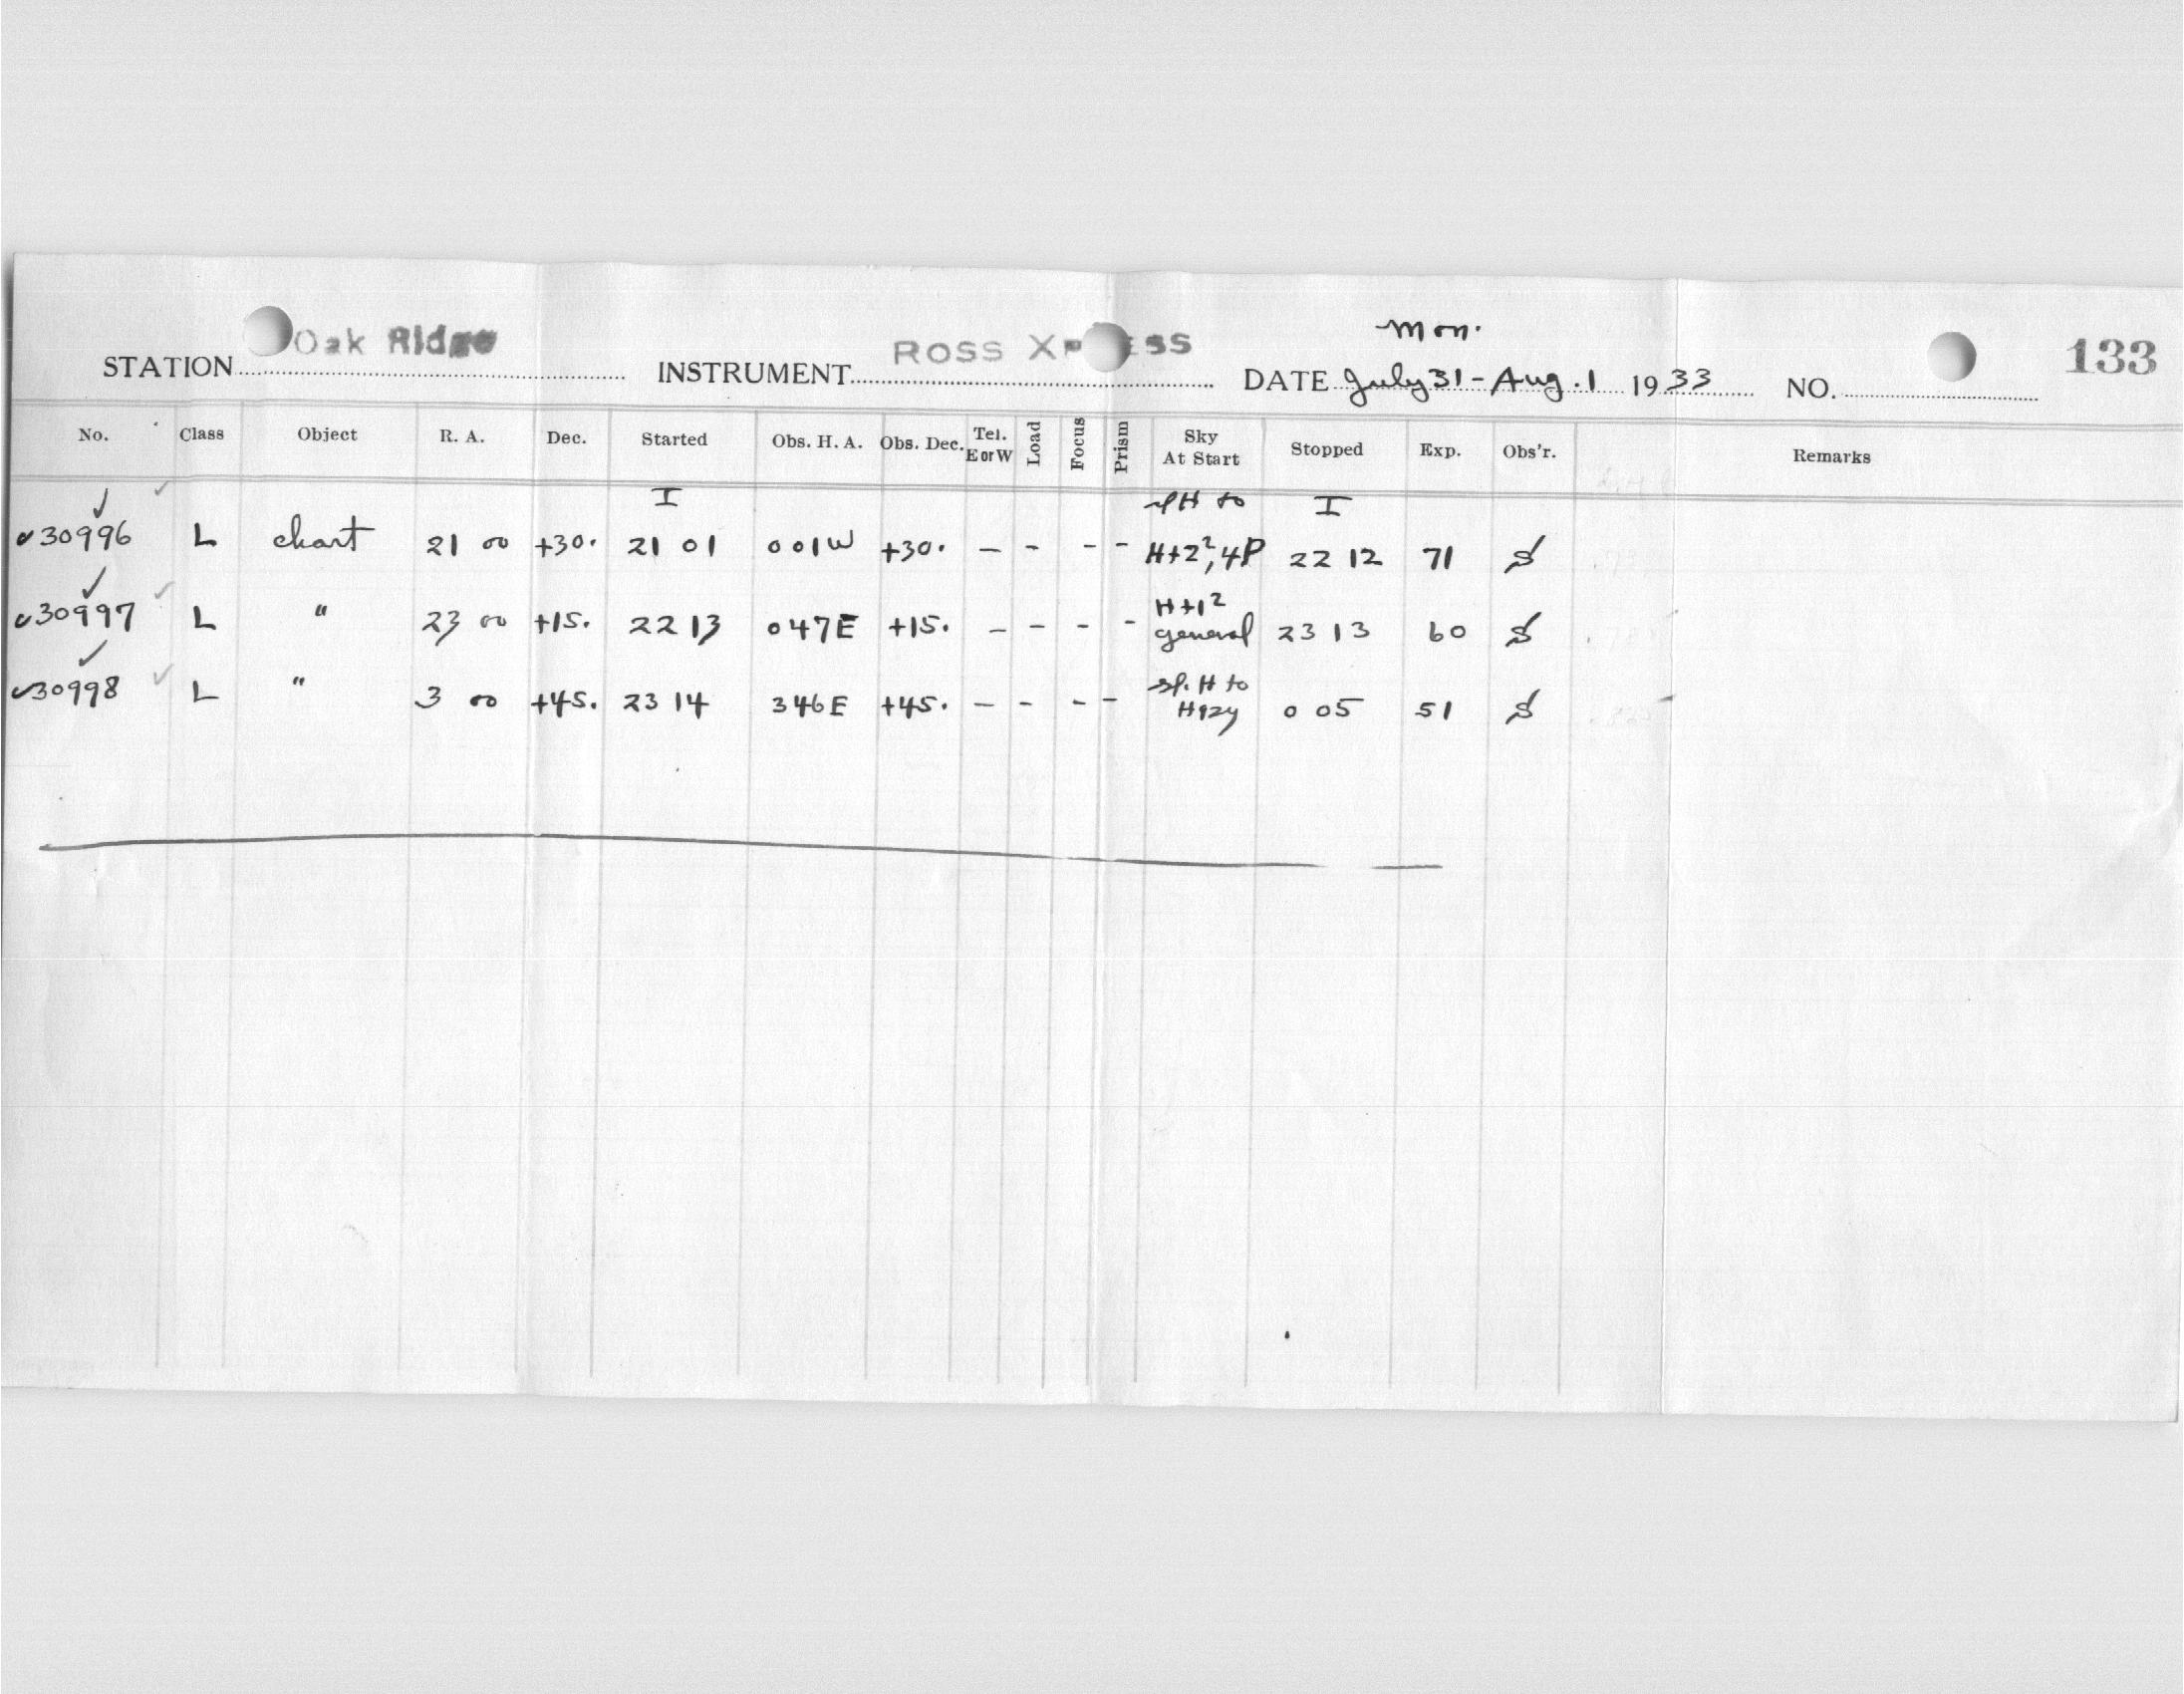 Mon.
STATION Oak Ridge INSTRUMENT ROSS XP ESS DATE July 31 - Aug. 1 1933 NO. 133
No. Class Object R. A. Dec. Started Obs. H. A. Obs. Dec. Tel. E or W Load Focus Prism Sky At Start Stopped Exp. Obs'r. Remarks
I H to I
30996 L chart 21 00 +30. 21 01 0 01W +30. – - - - H+2², 4P 22 12 71 S
H+1²
30997 L " 23 00 +15. 22 13 0 47E +15. – - - - general 23 13 60 S
sp. H to
30998 L " 3 00 +45. 23 14 3 46E +45. – - - - Hazy 0 05 51 S